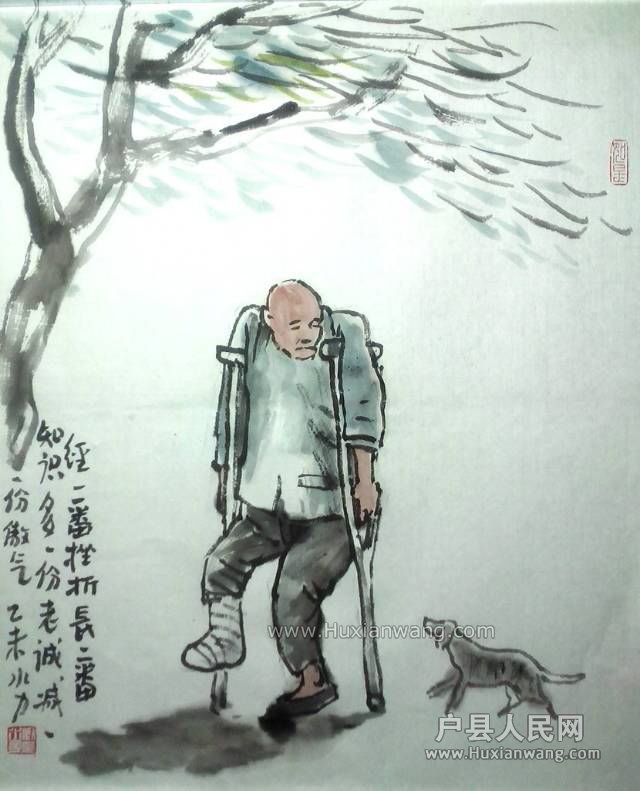 经一番挫折長一番
知识多一份老诚减
一份傲气 乙未水力
www.Huxianwang.com
户县人民网
www.Huxianwang.com